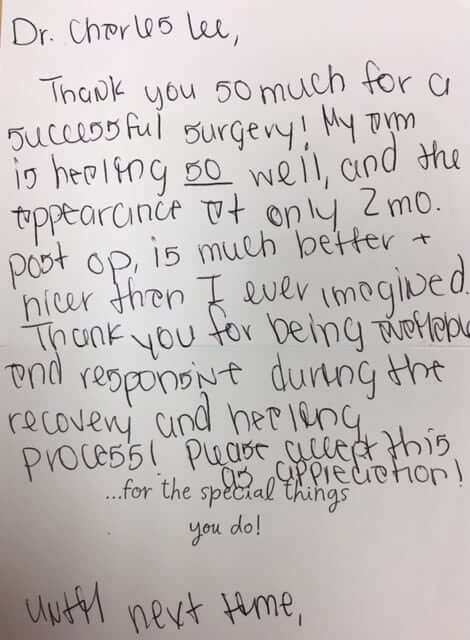 Dr. Charles Lee,
Thank you so much for a
successful surgery! My arm
is healing so well, and the
appearance at only 2 mo.
post op, is much better +
nicer than I ever imagined.
Thank you for being available
and responsive during the
recovery and healing
process! Please accept this
as appreciation!
...for the special things
you do!
until next time,